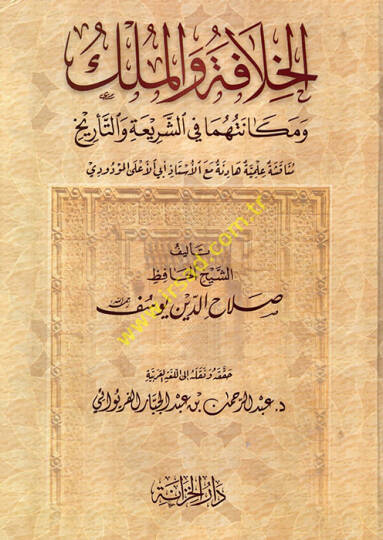 الخِلَافَةُ وَالمُلْكُ
وَمَكَانَتُهُمَا فِي الشَّرِيعَةِ وَالتَّأرِيخِ
مُنَاقَشَةٌ عِلْمِيَّةٌ هَادِئَةٌ مَعَ الأُسْتَاذِ أَبِي الأَعْلَى المَوْدُودِيِّ
تَألِيفُ
الشَّيْخِ الحَافِظِ
صَلَاحِ الدِّينِ يُوسُف رحمه الله
www.irsad.com.tr
حَقَّقَهُ وَنَقَلَهُ إِلَى اللُّغَةِ العَرَبِيَّةِ
د. عَبْدُ الرَّحْمَنِ بْنُ عَبْدِ الجَبَّارِ الفَرِيوَائِي
دَارُ الخِزَانَةِ